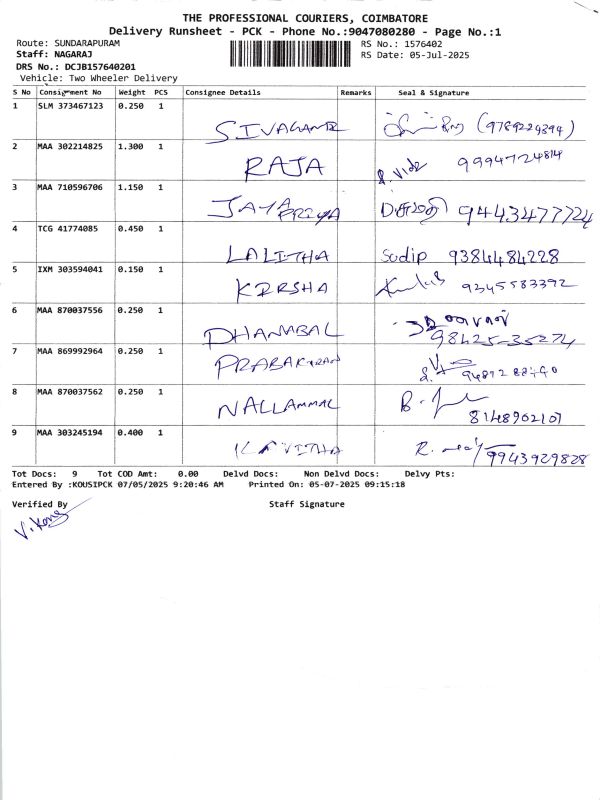 THE PROFESSIONAL COURIERS, COIMBATORE
Delivery Runsheet - PCK - Phone No.:9047080280 - Page No.:1
Route: SUNDARAPURAM RS No.: 1576402
Staff: NAGARAJ RS Date: 05-Jul-2025
DRS No.: DCJB157640201
Vehicle: Two Wheeler Delivery
S No Consignment No Weight PCS Consignee Details Remarks Seal & Signature
1 SLM 373467123 0.250 1 SIVAGAMI (9789229394)
2 MAA 302214825 1.300 1 RAJA 9994724814
3 MAA 710596706 1.150 1 JAYAPRIYA 9443477724
4 TCG 41774085 0.450 1 LALITHA Sudip 9384484228
5 IXM 303594041 0.150 1 KRRSHA 9345583392
6 MAA 870037556 0.250 1 DHANABAL 98425-35274
7 MAA 869992964 0.250 1 PRABAKARAN
8 MAA 870037562 0.250 1 NALLAMMAL 8148902107
9 MAA 303245194 0.400 1 KAVITHA 9943929828
Tot Docs: 9 Tot COD Amt: 0.00 Delvd Docs: Non Delvd Docs: Delvy Pts:
Entered By :KOUSIPCK 07/05/2025 9:20:46 AM Printed On: 05-07-2025 09:15:18
Verified By Staff Signature